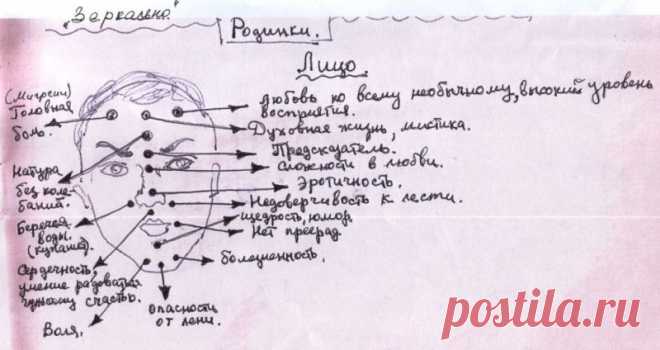 „Зеркально."
Родинки.
Лицо.
(Мигрени)
Головная
боль.
Любовь ко всему необычному, высокий уровень
восприятия.
Духовная жизнь, мистика.
Предсказатель.
Сложности в любви.
Эротичность.
Недоверчивость к лести.
щедрость, юмор.
Нет преград
болезненность.
Натура
без коле-
баний.
Берегись
воды.
(купания).
Сердечность,
умение радоваться
чужому счастью.
Воля.
опасности
от лени.
postila.ru